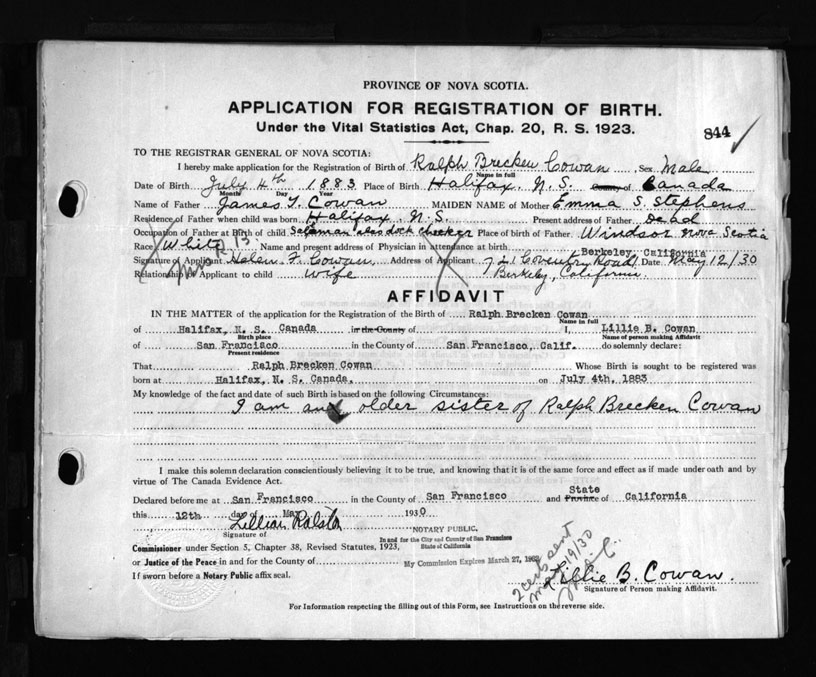 PROVINCE OF NOVA SCOTIA.
APPLICATION FOR REGISTRATION OF BIRTH.
Under the Vital Statistics Act, Chap. 20, R. S. 1923.
844
TO THE REGISTRAR GENERAL OF NOVA SCOTIA:
I hereby make application for the Registration of Birth of Ralph Brecken Cowan Sex Male
Name in full
Date of Birth July 4th 1883 Place of Birth Halifax, N.S. County of Canada
Month Day Year
Name of Father James Y. Cowan MAIDEN NAME of Mother Emma S. Stephens
Residence of Father when child was born Halifax, N.S. Present address of Father Dead
Occupation of Father at Birth of child Salesman also dock checker Place of Birth of Father Windsor Nova Scotia
Race White Name and present address of Physician in attendance at birth
Berkeley, California
Signature of Applicant Helen F. Cowan Address of Applicant 721 Coventry Road Date May 12/30
Relationship of Applicant to child wife Berkeley, California
AFFIDAVIT
IN THE MATTER of the application for the Registration of Birth of Ralph Brecken Cowan
Name in full
of Halifax, N. S. Canada in the County of I, Lillie B. Cowan
Birth place Name of person making Affidavit
of San Francisco in the County of San Francisco, Calif. do solemnly declare:
Present residence
That Ralph Brecken Cowan Whose Birth is sought to be registered was
born at Halifax, N. S. Canada, on July 4th, 1883
My knowledge of the fact and date of such Birth is based on the following Circumstances:
I am an older sister of Ralph Brecken Cowan
I make this solemn declaration conscientiously believing it to be true, and knowing that it is of the same force and effect as if made under oath and by
virtue of The Canada Evidence Act.
State
Declared before me at San Francisco in the County of San Francisco and Province of California
this 12th day of May 1930
Lillian Ralston
Signature of NOTARY PUBLIC,
In and for the City and County of San Francisco
Commissioner under Section 5, Chapter 38, Revised Statutes, 1923, State of California
or Justice of the Peace in and for the County of My Commission Expires March 27, 
If sworn before a Notary Public affix seal.
2 certs sent
19/30
Lillie B. Cowan.
Signature of Person making Affidavit.
For Information respecting the filling out of this Form, see Instructions on the reverse side.